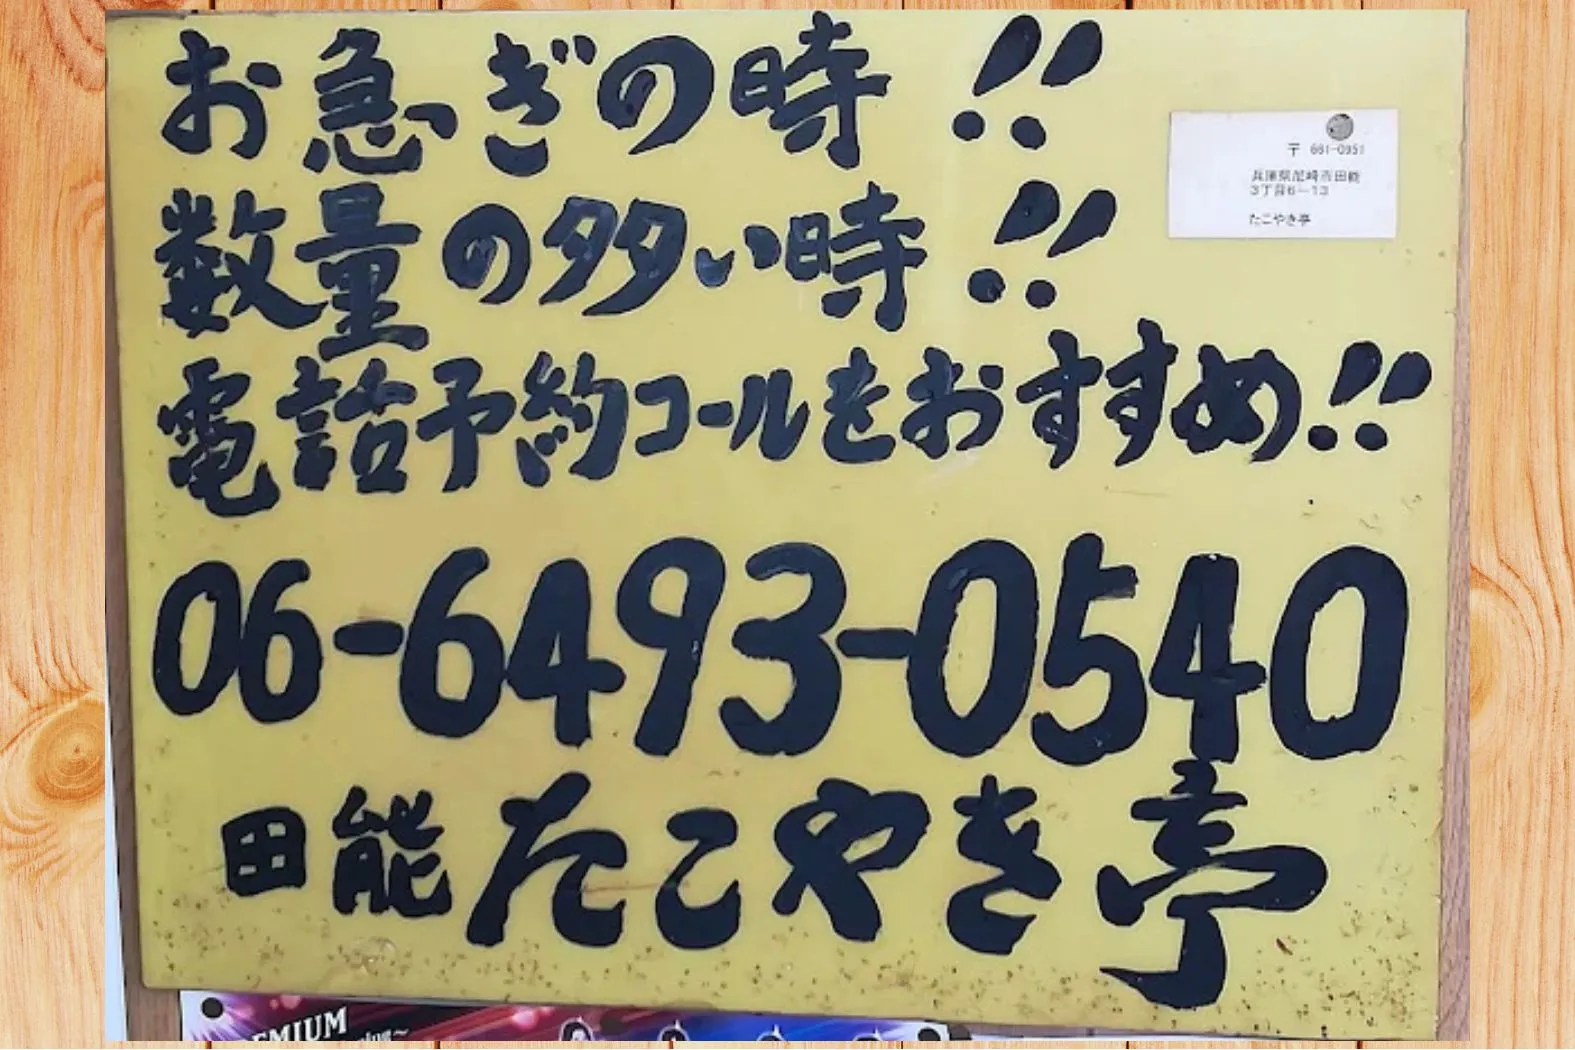 お急ぎの時!!
数量の多い時!!
電話予約コールをおすすめ!!
06-6493-0540
田能たこやき亭
〒 661-0951
兵庫県尼崎市田能
3丁目6-13
たこやき亭
EMIUM